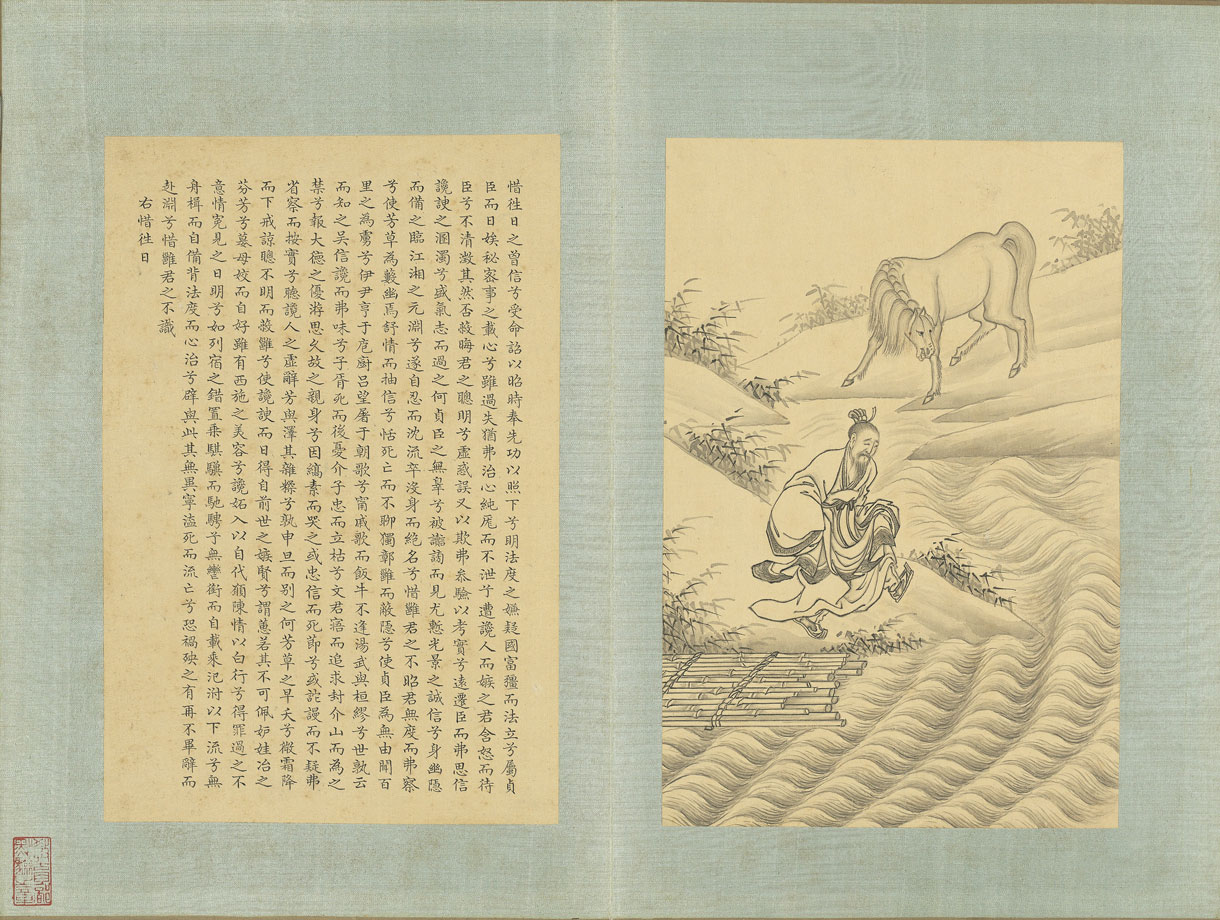 惜往日之曾信兮受命詔以昭時奉先功以照下兮明法度之嫌疑國富彊而法立兮屬貞
臣而日娭秘密事之載心兮雖過失猶弗治心純庬而不泄兮遭讒人而嫉之君含怒而待
臣兮不清澂其然否蔽晦君之聰明兮虛惑誤又以欺弗參驗以考實兮遠遷臣而弗思信
讒諛之溷濁兮盛氣志而過之何貞臣之無辠兮被讟謗而見尤慙光景之誠信兮身幽隱
而備之臨江湘之元淵兮遂自忍而沈流卒沒身而絶名兮惜雝君之不昭君無度而弗察
兮使芳草為藪幽焉舒情而抽信兮恬死亡而不聊獨鄣雝而蔽隱兮使貞臣為無由聞百
里之為虜兮伊尹亨于庖厨呂望屠于朝歌兮甯戚歌而飯牛不逢湯武與桓繆兮世孰云
而知之吳信讒而弗味兮子胥死而後憂介子忠而立枯兮文君寤而追求封介山而為之
禁兮報大德之優游思久故之親身兮因縞素而哭之或忠信而死節兮或訑謾而不疑弗
省察而按實兮聽讒人之虛辭芳與澤其雜糅兮孰申旦而别之何芳草之早夭兮微霜降
而下戒諒聰不明而蔽雝兮使讒諛而日得自前世之嫉賢兮謂蕙若其不可佩妒娃冶之
芬芳兮母姣而自好雖有西施之美容兮讒妬入以自代願陳情以白行兮得罪過之不
意情冤見之日明兮如列宿之錯置乘騏驥而馳騁兮無轡銜而自載乘氾泭以下流兮無
舟楫而自備背法度而心治兮辟與此其無異寧溘死而流亡兮恐禍殃之有再不畢辭而
赴淵兮惜雝君之不識
右惜往日